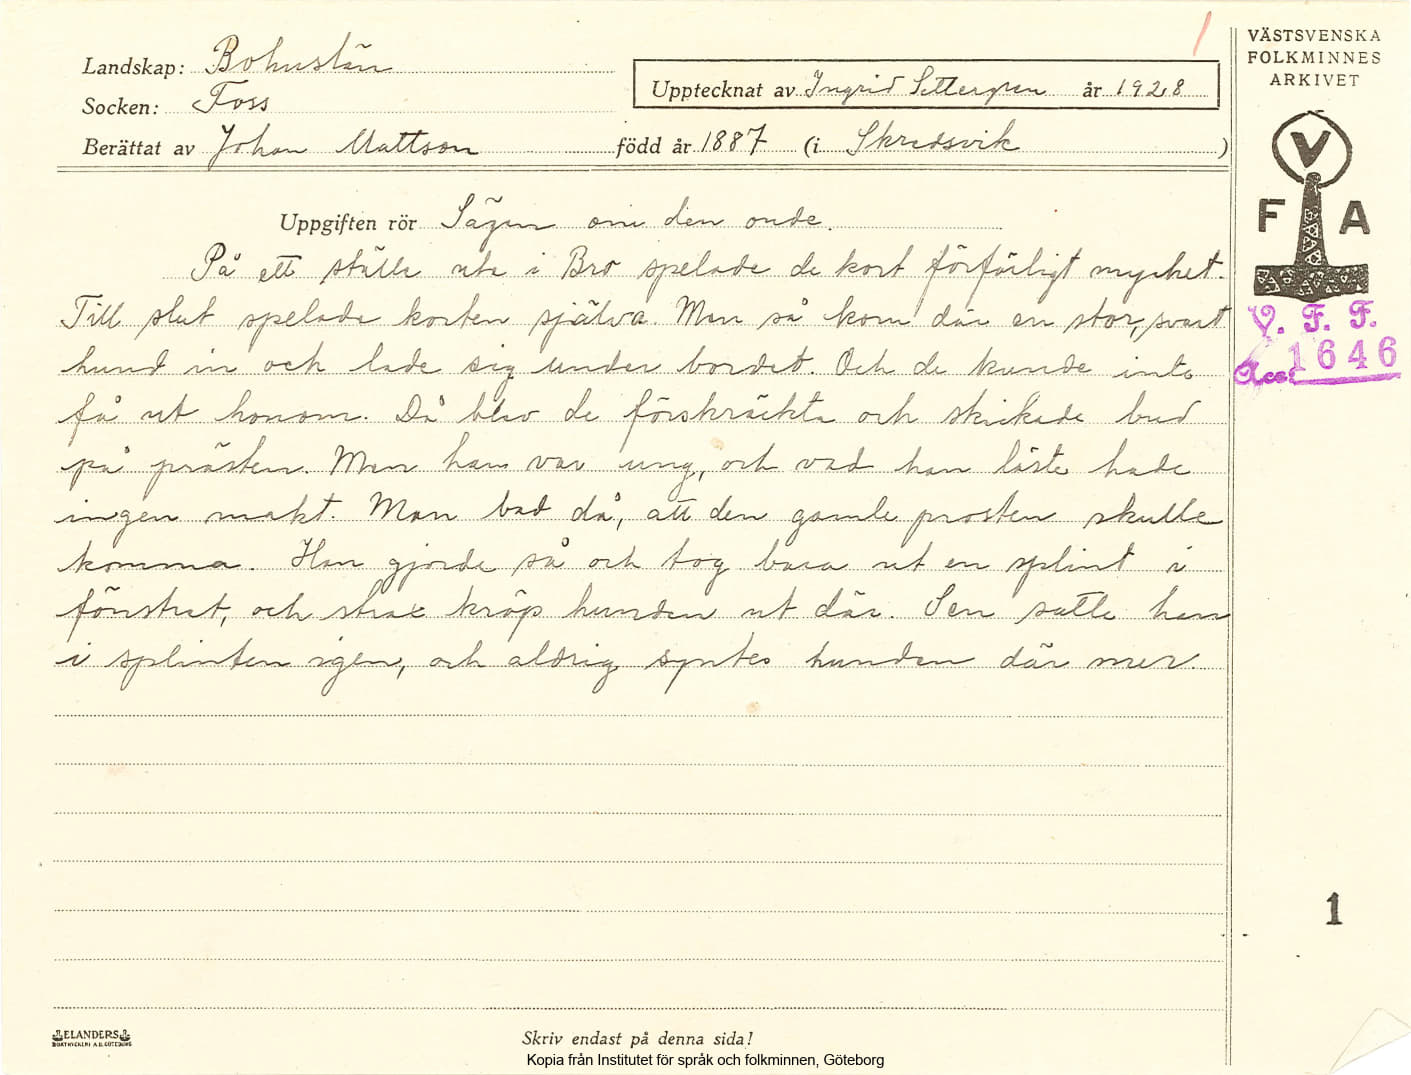 Landskap: Bohuslän
Socken: Foss
Berättat av Johan Mattson född år 1887 (i Skredsvik)
Upptecknat av Ingrid Settergren år 1928
VÄSTSVENSKA
FOLKMINNES
ARKIVET
V
F A
V. F. F.
Acc. 1646
Uppgiften rör Sägen om den onde.
På ett ställe ute i Bro spelade de kort förfärligt mycket.
Till slut spelade korten själva. Men så kom där en stor, svart
hund in och lade sig under bordet. Och de kunde inte
få ut honom. Då blev de förskräckta och skickade bud
på prästen. Men han var ung, och vad han läste hade
ingen makt. Man bad då, att den gamle prosten skulle
komma. Han gjorde så och tog bara ut en splint i
fönstret, och strax kröp hunden ut där. Sen satte han
i splinten igen, och aldrig syntes hunden där mer.
1
ELANDERS
BOKTRYCKERI A.B. GÖTEBORG
Skriv endast på denna sida!
Kopia från Institutet för språk och folkminnen, Göteborg